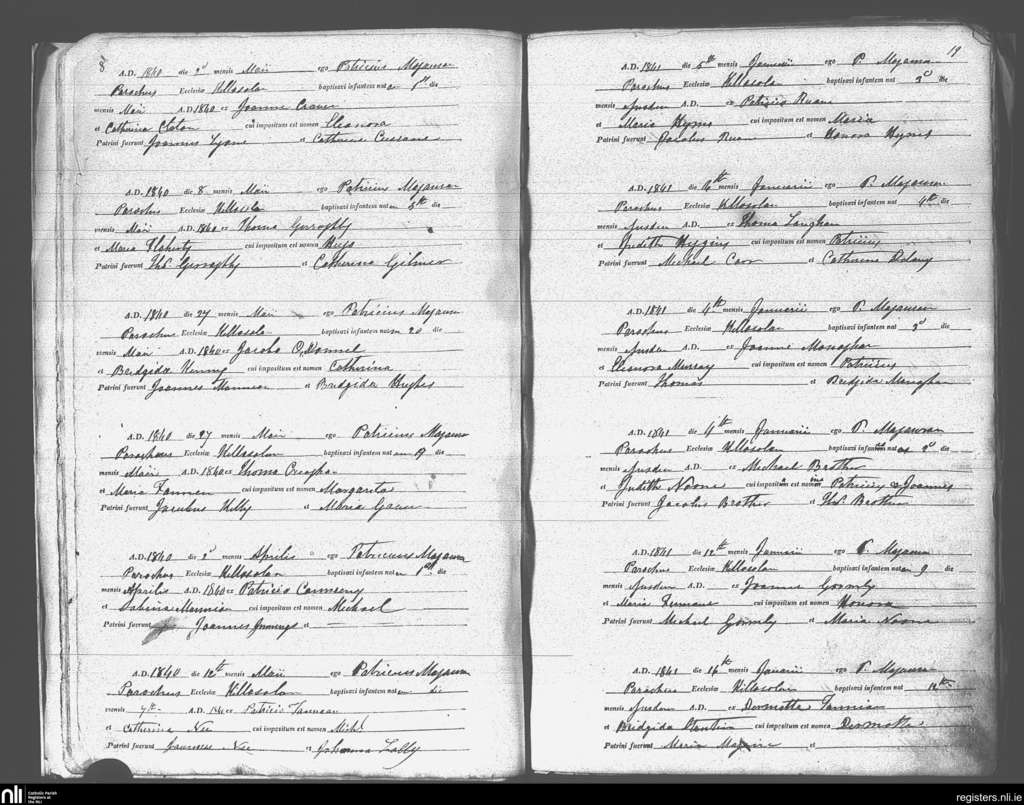 8
A.D. 1840 die 2d mensis Maii ego Patricius Majawran
Parochus Ecclesiæ Killosolan baptisavi infantem natam 1st die
mensis Maii A.D. 1840 ex Joanne Craven
et Catherina cui impositum est nomen Eleanora
Patrini fuerunt Joannes Lyons et Catherine
A.D. 1840 die 8 mensis Maii ego Patricius Majawran
Parochus Ecclesiæ Killosolan baptisavi infantem natam 5th die
mensis Maii A.D. 1840 ex Thoma Geraghty
et Maria Flaherty cui impositum est nomen
Patrini fuerunt Ths. Geraghty et Catherina Gilmer
A.D. 1840 die 27 mensis Maii ego Patricius Majawran
Parochus Ecclesiæ Killosolan baptisavi infantem natam 20 die
mensis Maii A.D. 1840 ex Jacobo O'Donnel
et Bridgida Kenny cui impositum est nomen Catherina
Patrini fuerunt Joannes Mannion et Bridgida Hughes
A.D. 1840 die 27 mensis Maii ego Patricius Majawran
Parochus Ecclesiæ Killosolan baptisavi infantem natam 9 die
mensis Maii A.D. 1840 ex Thoma Creaghan
et Maria Fannen cui impositum est nomen Margarita
Patrini fuerunt Jacobus Kelly et Maria
A.D. 1840 die 2d mensis Aprilis ego Patricius Majawran
Parochus Ecclesiæ Killosolan baptisavi infantem natum 1st die
mensis Aprilis A.D. 1840 ex Patricio
et Sabina Mannion cui impositum est nomen Michael
Patrini fuerunt Joannes Jennings et
A.D. 1840 die 12th mensis Maii ego Patricius Majawran
Parochus Ecclesiæ Killosolan baptisavi infantem natum die
mensis 7th A.D. 1840 ex Patricio Fannean
et Catherina Nee cui impositum est nomen Michl
Patrini fuerunt Nee et Johanna Lally
19
A.D. 1841 die 5th mensis Januarii ego P. Majawran
Parochus Ecclesiæ Killosolan baptisavi infantem nat 3d die
mensis ejusdem A.D. ex Patricio Ruane
et Maria Hynes cui impositum est nomen Maria
Patrini fuerunt Ruan et Honora Hynes
A.D. 1841 die 6th mensis Januarii ego P. Majawran
Parochus Ecclesiæ Killosolan baptisavi infantem nat 4th die
mensis ejusdem A.D. ex Thoma Langhan
et Judith Higgins cui impositum est nomen Patricius
Patrini fuerunt Michael et Catherine Delany
A.D. 1841 die 4th mensis Januarii ego P. Majawran
Parochus Ecclesiæ Killosolan baptisavi infantem nat 2d die
mensis ejusdem A.D. ex Joanne Monaghan
et Eleonora Murray cui impositum est nomen Patricius
Patrini fuerunt Thomas et Bridgida Monaghan
A.D. 1841 die 4th mensis Januarii ego P. Majawran
Parochus Ecclesiæ Killosolan baptisavi infantem natos 2d die
mensis ejusdem A.D. ex Michael Brother
et Judith Noone cui impositum est nomina Patricius & Joannes
Patrini fuerunt Jacobus Brother et Ths. Brother
A.D. 1841 die 12th mensis Januarii ego P. Majawran
Parochus Ecclesiæ Killosolan baptisavi infantem natam 9 die
mensis ejusdem A.D. ex Joanne Gormly
et Maria cui impositum est nomen Honora
Patrini fuerunt Michael Gormly et Maria Noone
A.D. 1841 die 16th mensis Januarii ego P. Majawran
Parochus Ecclesiæ Killosolan baptisavi infantem nat 14th die
mensis ejusdem A.D. ex Dermotte Fannian
et Bridgida cui impositum est nomen Dermotte
Patrini fuerunt Maria et
nli
Catholic Parish
Registers at
the NLI
registers.nli.ie